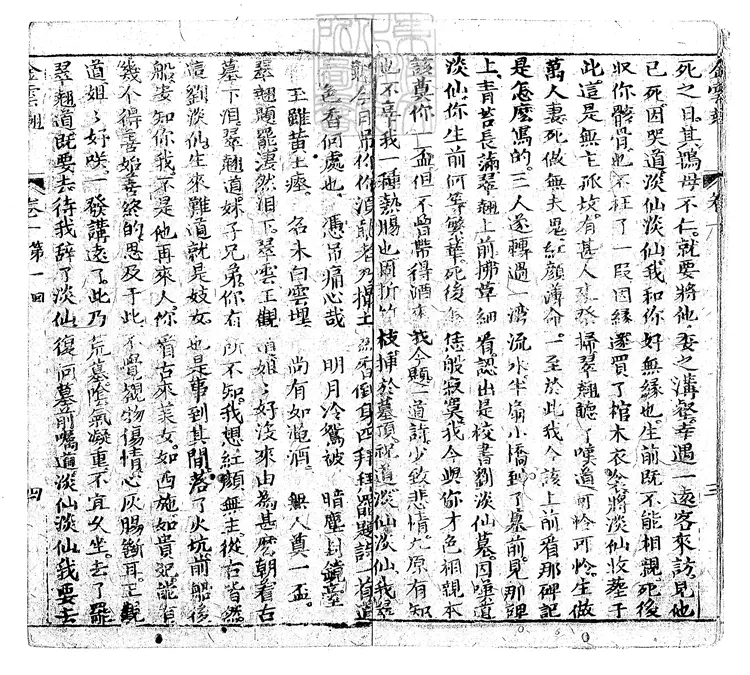 金雲翹 卷一 三
死之日。其鴇母不仁。就要將他委之溝壑。幸遇一遠客來訪。見他
已死。因哭道。淡仙淡仙。我和你好無緣也。生前既不能相親。死後
収你骸骨。也不枉了一叚因緣。遂買了棺木衣衾。將淡仙收塟于
此。這是無主孤坟。有甚人來祭掃。翠翹聽了嘆道。可怜可怜。生做
萬人妻。死做無夫鬼。紅顔薄命。一至於此。我今該上前看那碑記
是怎麽寫的。三人遂轉過一灣流水半扇小橋。到了墓前。見那碑
上。青苔長滿。翠翹上前拂草細看。認出是校書劉淡仙墓。因嘆道
淡仙。你生前何等繁華。死後今恁般寂寞。我今與你才色相親。本
該奠你一盃。但不曾帶得酒來。我今題一道詩。少致悲情。九原有知
也不辜我一種熱腸也。因折竹枝插於墓頭。祝道。淡仙淡仙。我翠
翹今日吊你。你須聽者。乃撮土為香。倒身四拜。拜罷題詩一首道
色香何處也 憑吊痛心哉 明月冷鴛被 暗塵封鏡臺
玉雖黄土瘞 名未白雲埋 尚有如澠酒 無人奠一盃。
翠翹題罷。凄然泪下。翠雲王觀道。姐姐好沒來由。為甚麽朝着古
墓下泪。翠翹道。妹子兄弟。你有所不知。我想紅顔無主。從古皆然
這劉淡仙。生來難道就是妓女。也是事到其間。落了火坑。前船後
船。安知你我不是他再來人。你看古來美女。如西施。如貴妃。能有
幾个得善始善終的。思及于此。不覺覩物傷情。心灰腸斷耳。王觀
道。姐姐好咲。一發講遠了。此乃荒墓。陰氣凝重。不宜久坐。去了罷
翠翹道。既要去。待我辞了淡仙。復向墓前嘱道。淡仙淡仙。我要去
金雲翹 卷一 第一回 四